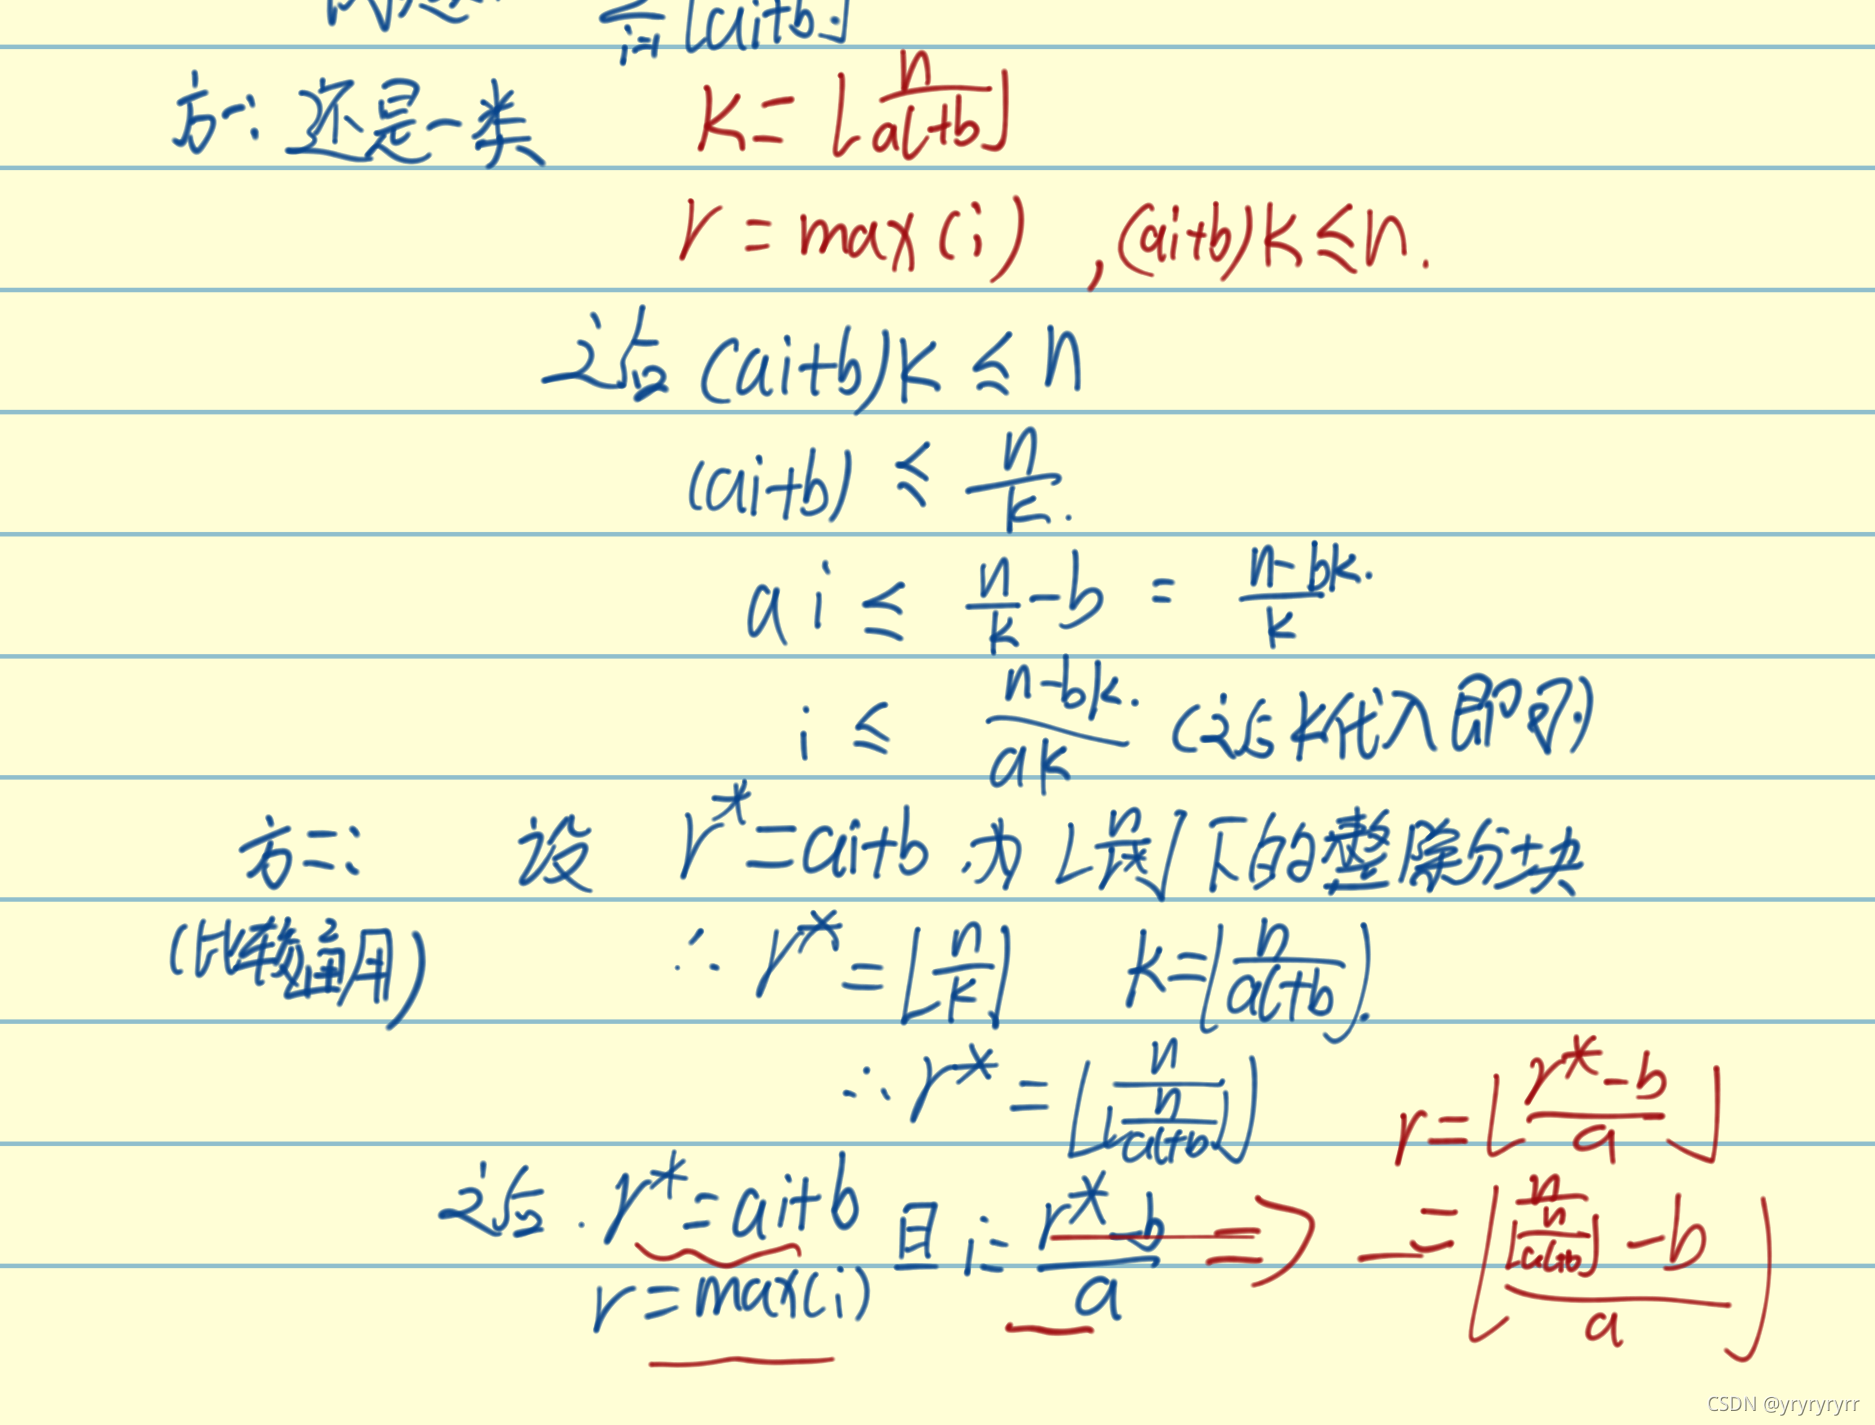 ∑_{i=1} ⌊ai+b⌋
方一: 还是一类 k=⌊n/(al+b)⌋
r=max(i) ,(ai+b)k≤n.
(ai+b)k≤n
(ai+b)≤n/k.
ai≤n/k-b=(n-bk)/k.
i≤(n-bk)/(ak) (k代入即可)
方二: 设 r*=ai+b 为⌊n/r*⌋下的整除分块
(比较通用) ∴ r*=⌊n/k⌋ k=⌊n/(al+b)⌋.
∴ r*=⌊n/⌊n/(al+b)⌋⌋ r=⌊(r*-b)/a⌋
r*=ai+b 且 i=(r*-b)/a ⇒ =⌊(n/⌊n/(al+b)⌋-b)/a⌋
r=max(i)
CSDN @yryryryrr